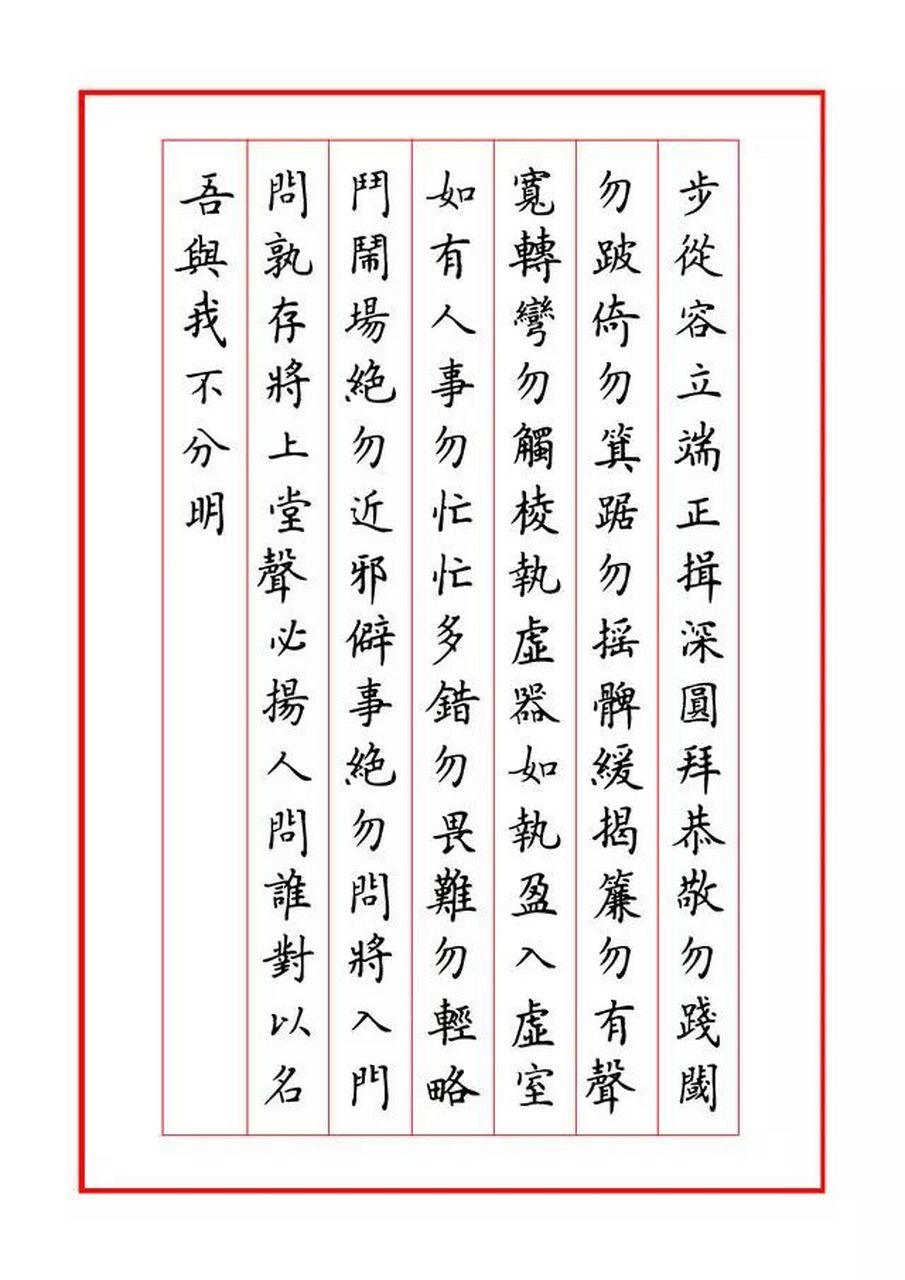 步從容立端正揖深圓拜恭敬勿踐閾
勿跛倚勿箕踞勿摇髀緩揭簾勿有聲
寬轉彎勿觸棱執虛器如執盈入虛室
如有人事勿忙忙多錯勿畏難勿輕略
鬥鬧場絕勿近邪僻事絕勿問將入門
問孰存將上堂聲必揚人問誰對以名
吾與我不分明